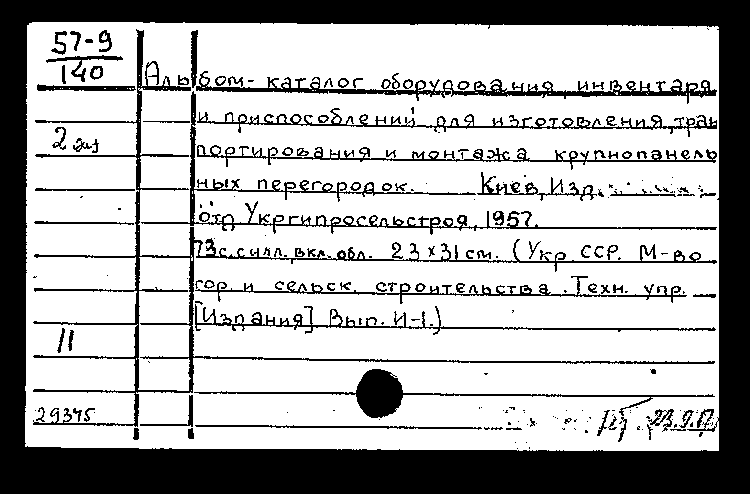 57-9
140
Альбом-каталог оборудования, инвентаря
и приспособлений для изготовления, тран
2 экз
портирования и монтажа крупнопанель
ных перегородок. Киев, Изд.
отд Укргипросельстроя, 1957.
73 с. с илл. вкл. обл. 23 х 31 см. (Укр. ССР. М-во
гор. и сельск. строительства. Техн. упр.
[Издания]. Вып. И-1.)
11
29375